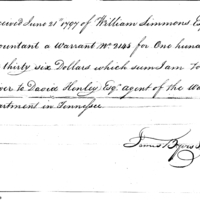 ceived June 21st 1797 of William Simmons Esq
countant a Warrant No. 2143 for One hund
thirty six Dollars which sum I am to
ver to David Henley Esqr agent of the Wa
artment in Tennessee
James Byers